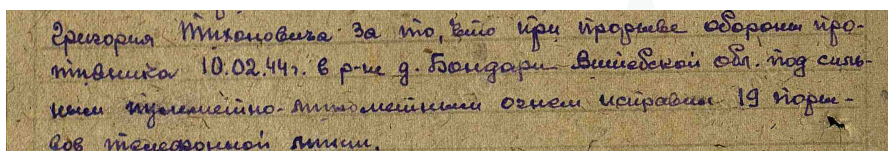 Григория Тихоновича за то, что при прорыве обороны про-
тивника 10.02.44г. в р-не д. Бондари Витебской обл. под силь-
ным пулеметно-минометным огнем исправил 19 поры-
вов телефонной линии.